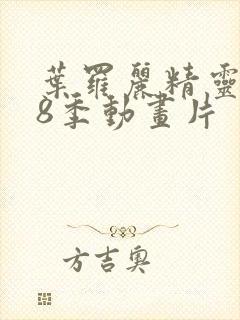 葉羅麗精靈
8季動畫片
方吉奧